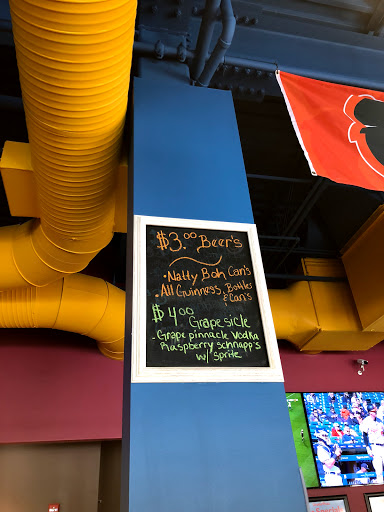 $3.00 Beer's
• Natty Boh Can's
• All Guinness Bottles
& Can's
$4.00 Grapesicle
- Grape pinnacle Vodka
Raspberry schnapp's
w/ Sprite